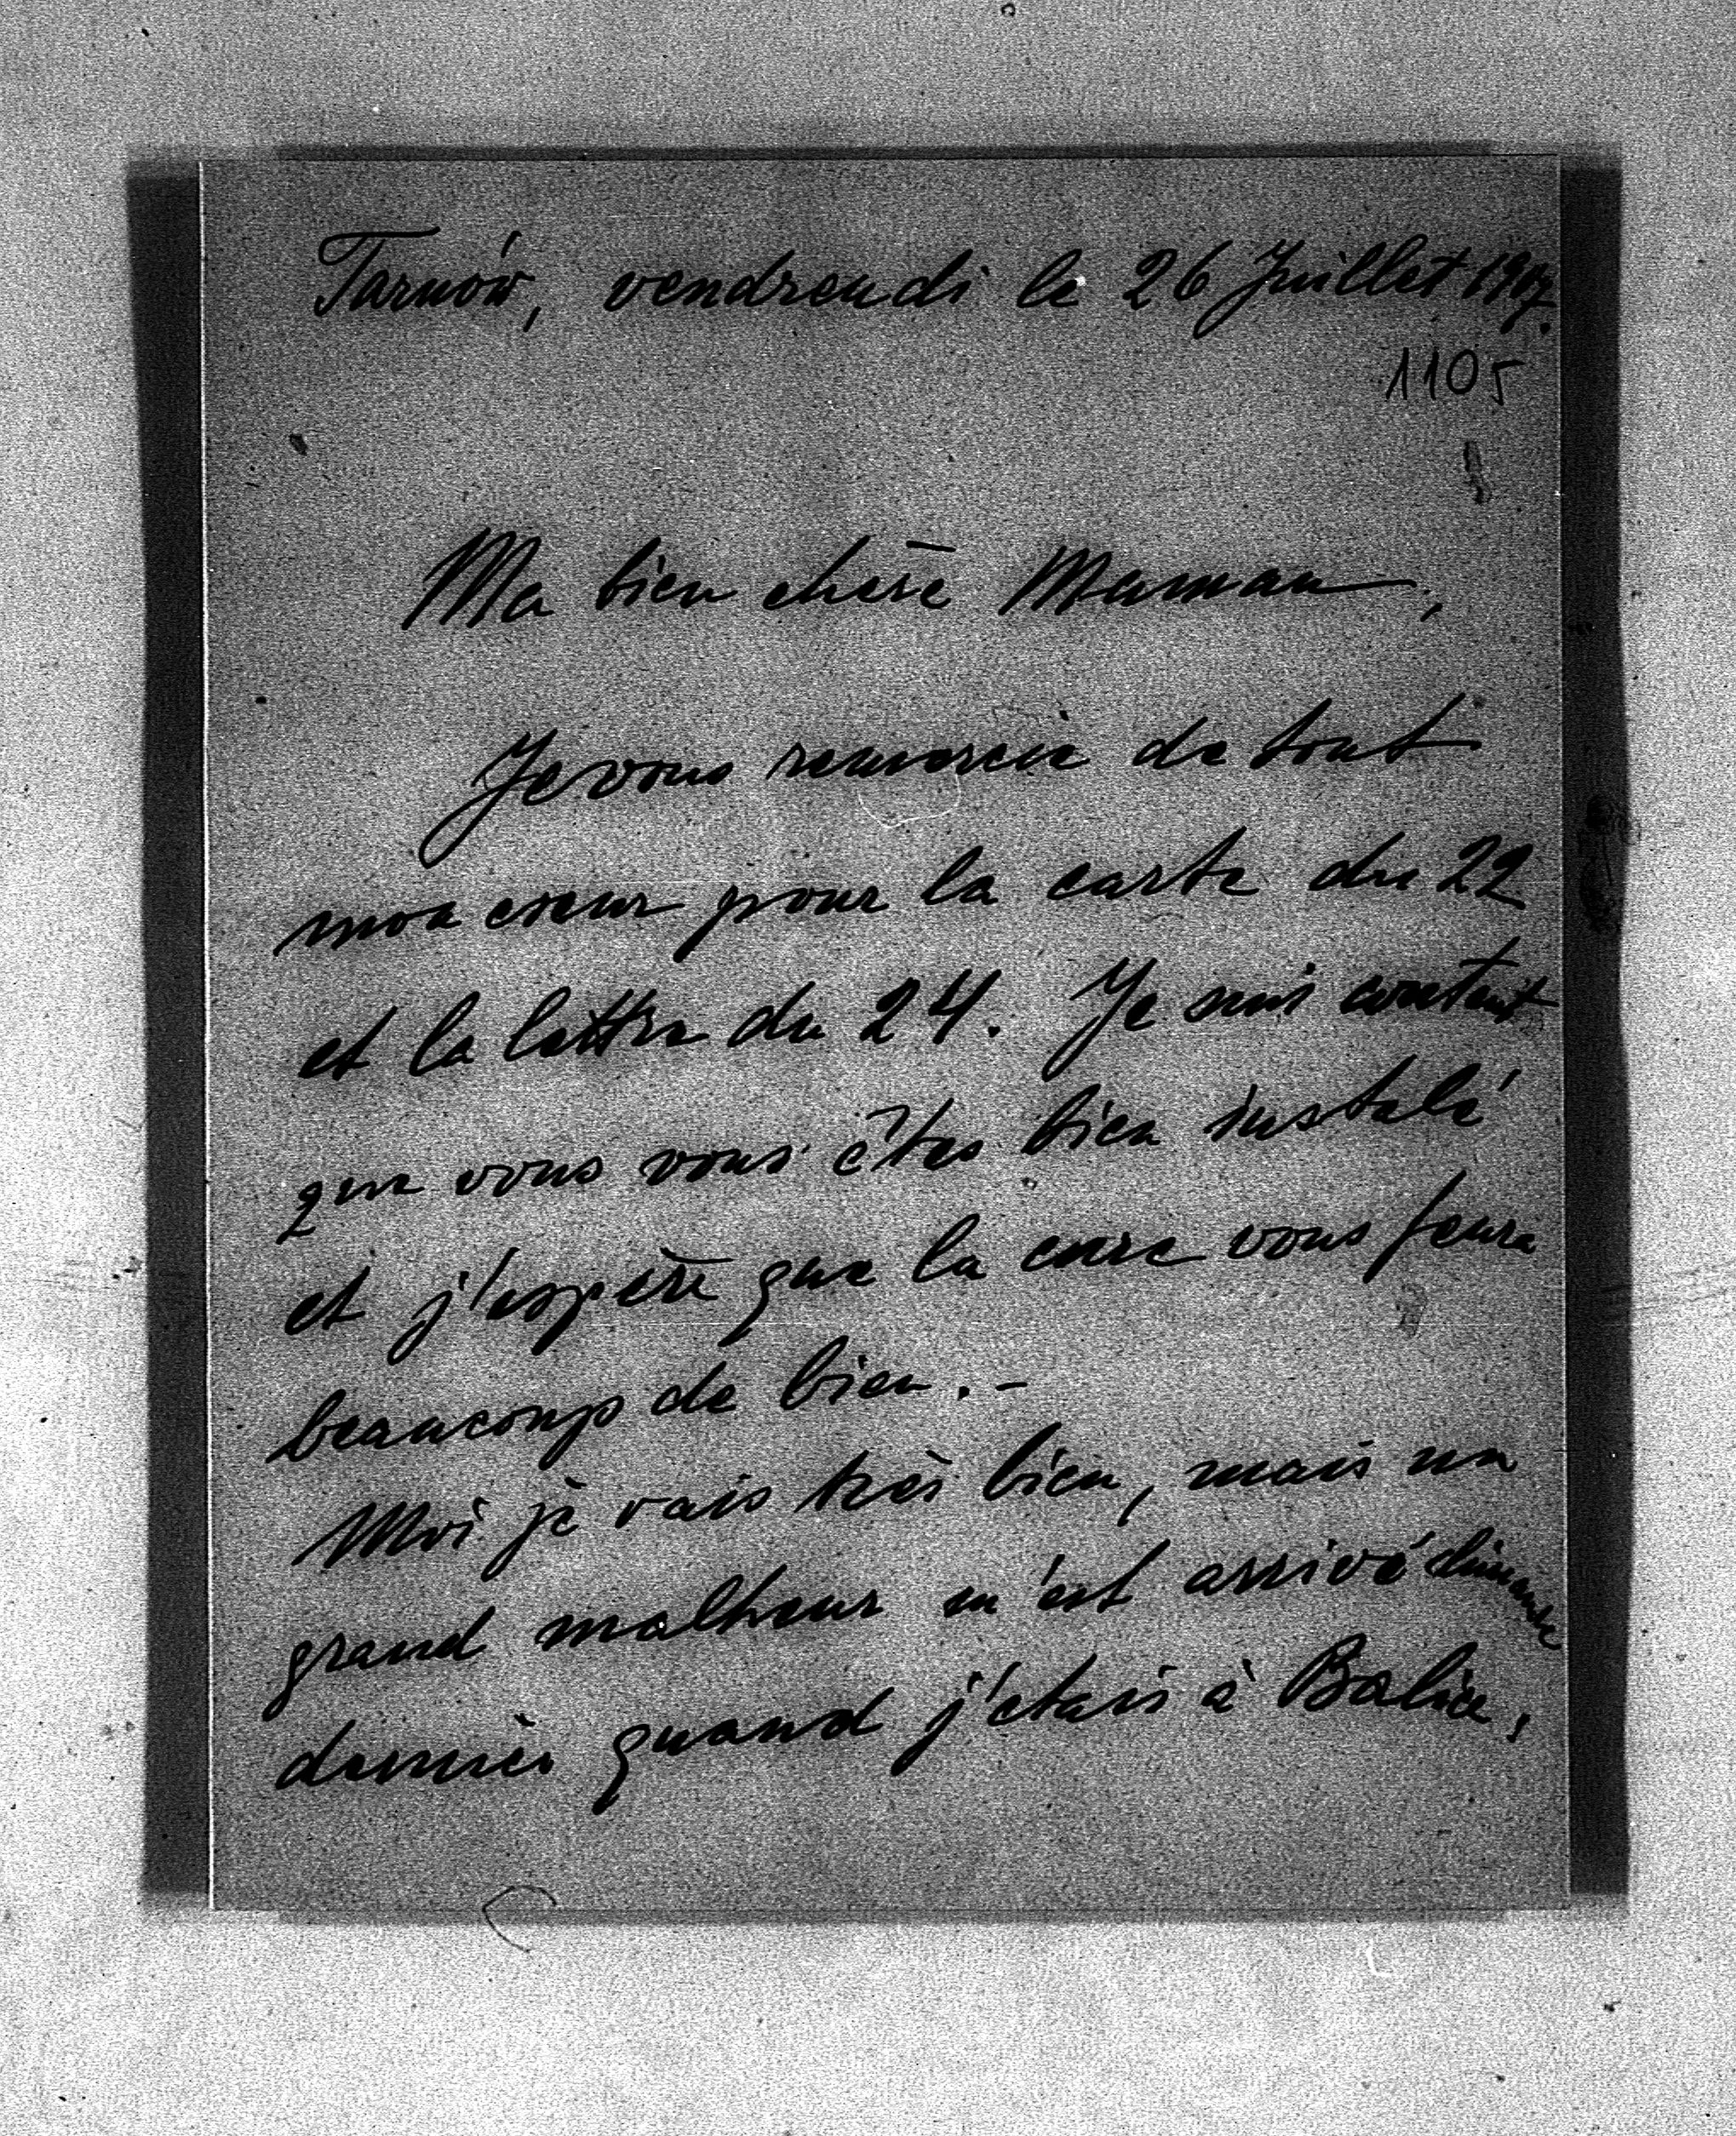 Tarnów, vendrendi le 26 Juillet 1907.
1105
Ma bien chère Maman,
Je vous remercie de tout
mon coeur pour la carte du 22
et la lettre du 24. Je suis content
que vous vous êtes bien instalé
et j'espère que la cure vous feura
beaucoup de bien. -
Moi je vais très bien, mais un
grand malheur m'est arrivé dimanche
dernier quand j'étais à Balice,